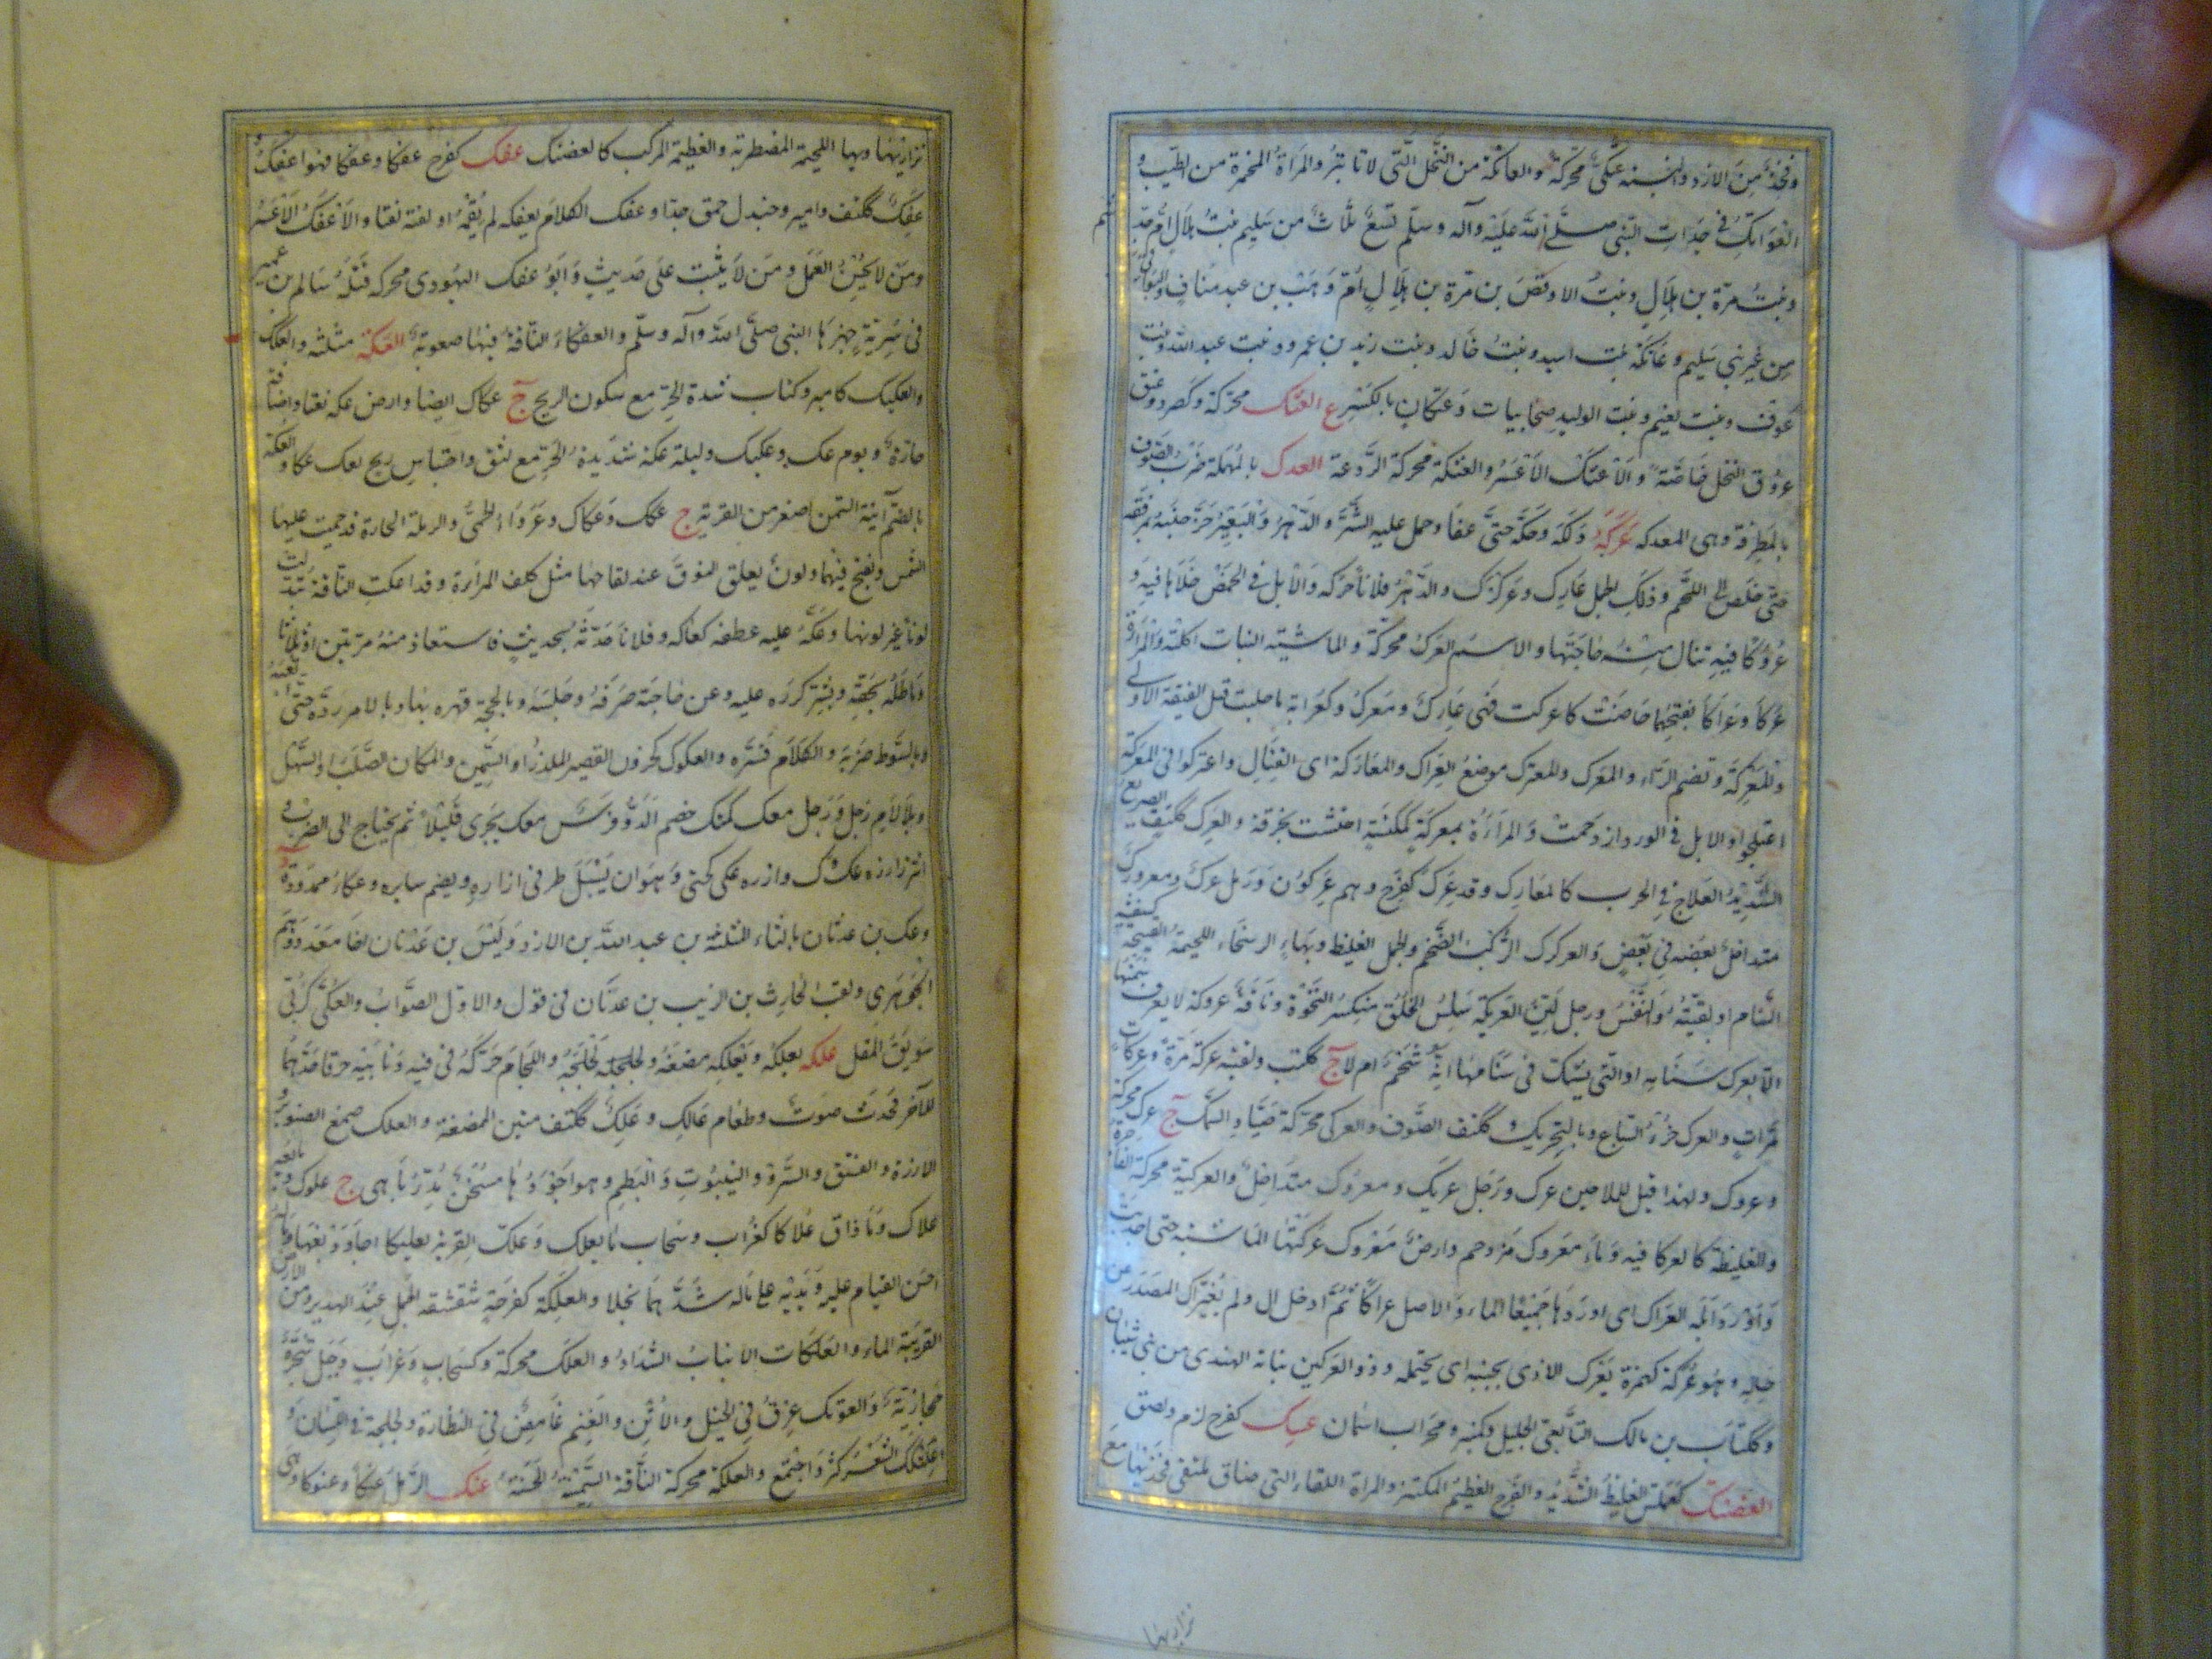 وفخذ من الازد والنسبة عتكى محركة والعاتكة من النخل التى لا تاتبر والمراة المحمرة من الطيب و
العواتك فى جدات النبى صلى الله عليه وآله وسلم تسع ثلاث من سليم بنت هلال ام جد هاشم
وبنت مرة بن هلال وبنت الاوقص بن مرة بن هلال ام وهب بن عبد مناف والبواقى
من غير بنى سليم وعاتكة بنت اسيد وبنت خالد وبنت زيد بن عمرو وبنت عبد الله وبنت
عوف وبنت نعيم وبنت الوليد صحابيات وعتكان بالكسر ع العتك محركة وكصرد وعنق
عروق النخل خاصة والاعتك الاعسر والعتكة محركة الردغة العدك بالمهملة ضرب الصوف
بالمطرقة وهى المعدكة عركه دلكه وحكه حتى عفا وحمل عليه الشر والدهر والبعير حز جنبه بمرفقه
حتى خلص الى اللحم وذلك الجمل عارك وعركرك والدهر فلانا حركه والابل فى الحمض خلاها فيه و
عروكا فيه تنال منه حاجتها والاسم العرك محركة والماشية النبات اكلته والمراة
عركا وعراكا بفتحهما حاضت كاعركت فهى عارك ومعرك وكعرابة ما حلبت قبل الفيقة الاولى
والمعركة وتضم الراء والمعرك والمعترك موضع العراك والمعاركة اى القتال واعتركوا فى المعركة
اعتلجوا والابل فى الورد ازدحمت والمراة بمعركة كمكنسة احتشت بخرقة والعرك ككتف الصريع
الشديد العلاج فى الحرب كالمعارك وقد عرك كفرح وهم عركون ورمل عرك ومعرورك
متداخل بعضه فى بعض والعركرك الركب الضخم والجمل الغليظ وبهاء الرسحاء اللحيمة القبيحة
السنام او بقيته والنفس ورجل لين العريكة سلس الخلق منكسر النخوة وناقة عروكة لا يعرف سمنها
الا بعرك سنامه او التى يشك فى سنامها ابه شحم ام لا ج ككتب ولقيته عركة مرة وعركات
مرات والعرك خرء السباع وبالتحريك وككتف الصوف والعركى محركة صياد السمك ج عرك محركة
وعروك ولهذا قيل للملاحين عرك ورجل عريك ومعروك متداخل والعركية محركة الفاجرة
والغليظة كالعركا فيه وماء معروك مزدحم وارض معروكة عركتها الماشية حتى اجدبت
واورد ابله العراك اى اوردها جميعا الماء والاصل عراكا ثم ادخل ال ولم تغير ال المصدر عن
حاله وهو عركة كهمزة يعرك الاذى بجنبه اى يحتمله وذو العركين نباتة الهندى من بنى شيبان
وككتاب بن مالك التابعى الجليل وكمنبر ومحراب اسمان عسك كفرح لزم ولصق
العضنك كعملس الغليظ الشديد والفرج العظيم المكتنز والمراة اللفاء التى ضاق ملتقى فخذيها مع
ترارتها
ترارتها وبهاء اللحيمة المضطربة والعظيمة الركب كالعضنك عفك كفرح عفكا وعفكا فهو اعفك
عفك ككتف وامير وجندل حمق جدا وعفك الكلام يعفكه لم يقمه او لفته لفتا والاعفك الاعسر
ومن لا يحسن العمل ومن لا يثبت على حديث وابو عفك اليهودى محركة قتله سالم بن عمير
فى سرية جهزها النبى صلى الله وآله وسلم والعفكاء الناقة فيها صعوبة العكة مثلثه والعكك
والعكيك كامير وكتاب شدة الحر مع سكون الريح ج عكاك ايضا وارض عكة نعتا واضافة
حارة ويوم عك وعكيك وليلة عكة شديدة الحر مع لثق واحتباس ريح يعك عكا والعكة
بالضم آنية السمن اصغر من القربة ج عكك وعكاك وعرواء الحمى والرملة الحارة قد حميت عليها
الشمس ويفتح فيهما ولون يعلو النوق عند لقاحها مثل كلف المراة وقد اعكت الناقة تبدلت
لونا غير لونها وعكه عليه عطفه كعاكه وفلانا حدثه بحديث فاستعاد منه مرتين او ثلاثا
وماطله بحقه وبشر كرره عليه وعن حاجته صرفه وحبسه وبالحجة قهره بها وبالامر رده حتى اتعبه
وبالسوط ضربه والكلام فسره والعكوك كحزور القصير الملزز او السمين والمكان الصلب او السهل
وبلا لام رجل ورجل معك كمنك خصم الد وفرس معك يجرى قليلا ثم يحتاج الى الضرب و
ائتزر ازرة عك وك وازرة عكى كحتى وهو ان يسبل طرفى ازاره ويضم سايره وعكاء ممدودة
وعك بن عدثان بالثاء المثلثة بن عبد الله بن الازد وليس بن عدنان اخا معد ووهم
الجوهرى ولقب الحارث بن الذيب بن عدنان فى قول والاول الصواب والعكى كرتى
سويق المقل علكه يعلكه ويعلكه مضغه ولجلجه واللجام حركه فى فيه ونابيه حرق احدهما
للآخر فحدث صوت وطعام عالك وعلك ككتف متين المضغة والعلك صمغ الصنوبر و
الارزة والفستق والسرو والينبوت والبطم وهو اجودها مسخن مدر باهى ج علوك
علاك وما ذاق علاكا كغراب وسحاب ما يعلك وعلك القربة تعليكا اجاد دبغها وماله
احسن القيام عليه ويديه على ماله شدهما بخلا والعلكة كفرحة شقشقة الجمل عند الهدير ومن الارض
القريبة الماء والعلكات الانياب الشداد والعلك محركة وكسحاب وغراب وجبل شجرة
حجازية والعولك عرق فى الخيل والاتن والغنم غامض فى البظارة ولجلجة فى اللسان و
اعلنكك الشعر كثر واجتمع والعلكة محركة الناقة السمينة الحسنة عنك الرمل عنكا وعنوكا وهى